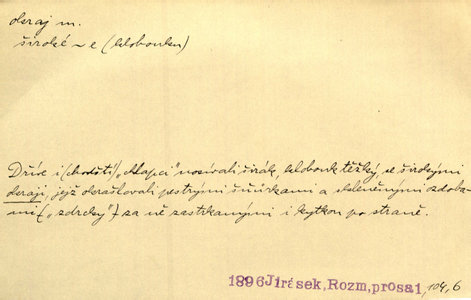 okraj m.
široké ~e (klobouku)
Dříve i (chodští) „chlapci" nosívali širák, klobouk těžký, se širokými
okraji, jejž okrašlovali pestrými šňůrkami a skleněnými ozdoba-
mi („zdrcky") za ně zastrkanými i kytkou po straně.
1896 Jirásek, Rozm, prosa1, 104, 6